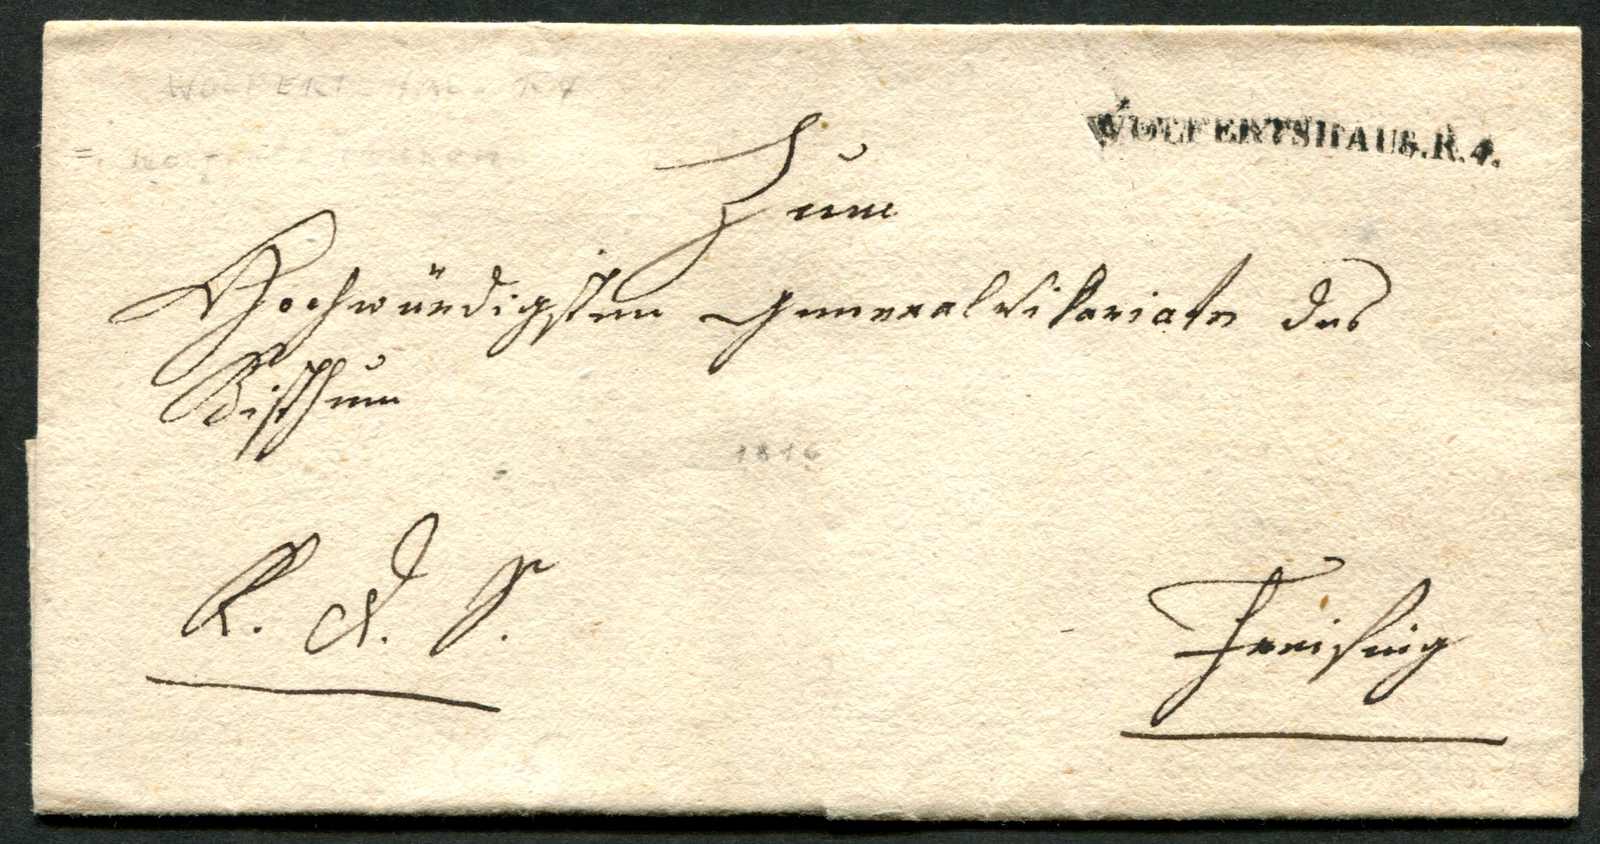 WOLFERTSHAUS.R.4.
Zum
Hochwürdigsten Generalvikariate des
Bisthum
1816
R. d. S.
Freising